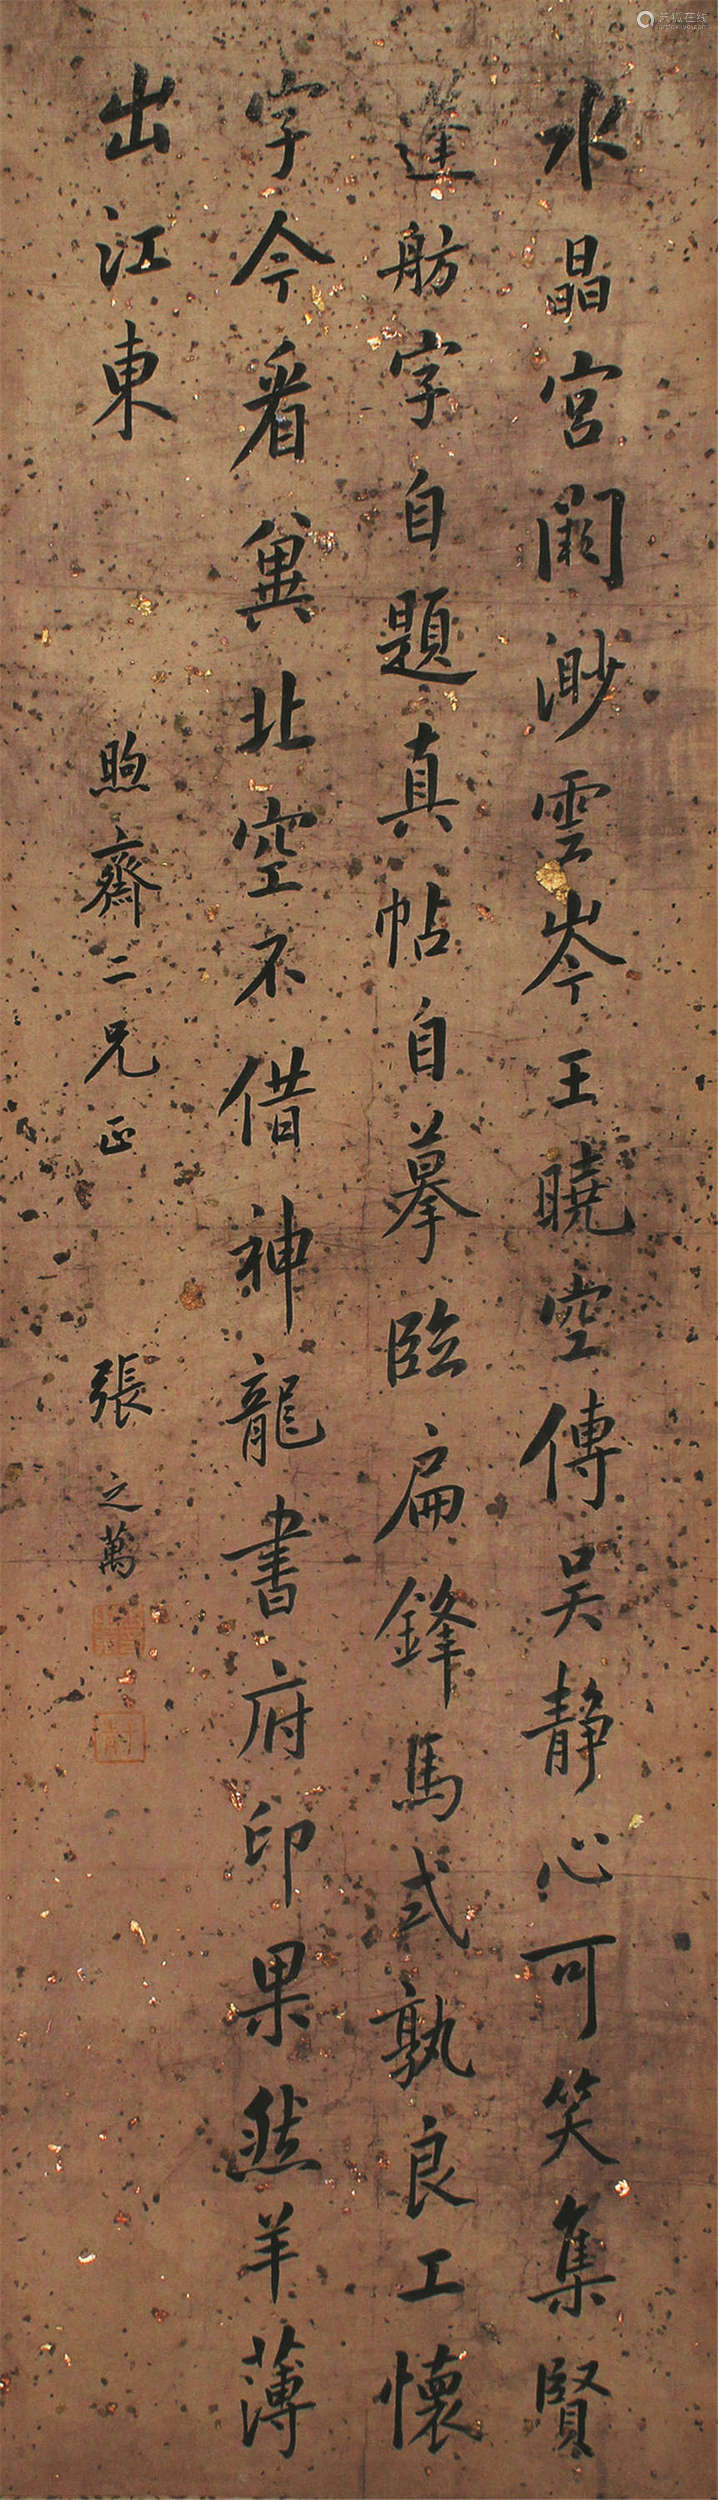 水晶宮闕渺雲岑王曉空傳吴静心可笑集賢
蓬舫字自題真帖自摹臨扁鋒馬式孰良工懷
字今看兾北空不借神龍書府印果然羊薄
出江東
煦齋二兄正
張之萬